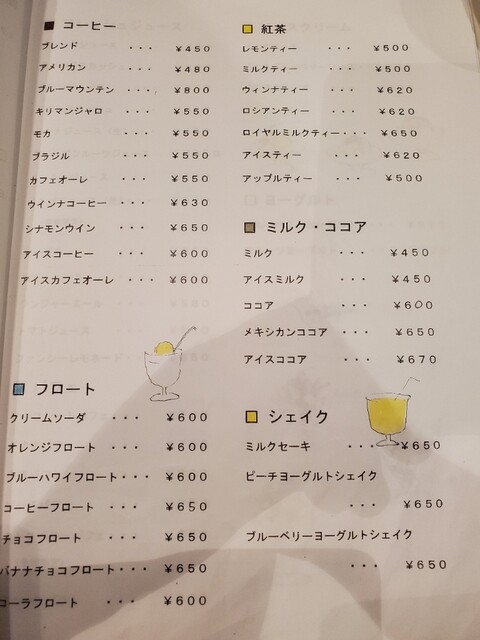 コーヒー
ブレンド ・・・ ¥450
アメリカン ・・・ ¥480
ブルーマウンテン ・・・ ¥800
キリマンジャロ ・・・ ¥550
モカ ・・・ ¥550
ブラジル ・・・ ¥550
カフェオーレ ・・・ ¥550
ウインナコーヒー ・・・ ¥630
シナモンウイン ・・・ ¥650
アイスコーヒー ・・・ ¥600
アイスカフェオーレ ・・・ ¥600
フロート
クリームソーダ ・・・ ¥600
オレンジフロート ・・・ ¥600
ブルーハワイフロート・・・ ¥600
コーヒーフロート ・・・ ¥650
チョコフロート ・・・ ¥650
バナナチョコフロート・・・ ¥650
コーラフロート ・・・ ¥600
紅茶
レモンティー ・・・ ¥500
ミルクティー ・・・ ¥500
ウィンナティー ・・・ ¥620
ロシアンティー ・・・ ¥620
ロイヤルミルクティー・・・ ¥650
アイスティー ・・・ ¥620
アップルティー ・・・ ¥500
ミルク・ココア
ミルク ・・・ ¥450
アイスミルク ・・・ ¥450
ココア ・・・ ¥600
メキシカンココア ・・・ ¥650
アイスココア ・・・ ¥670
シェイク
ミルクセーキ ・・・ ¥650
ピーチヨーグルトシェイク
・・・ ¥650
ブルーベリーヨーグルトシェイク
・・・ ¥650